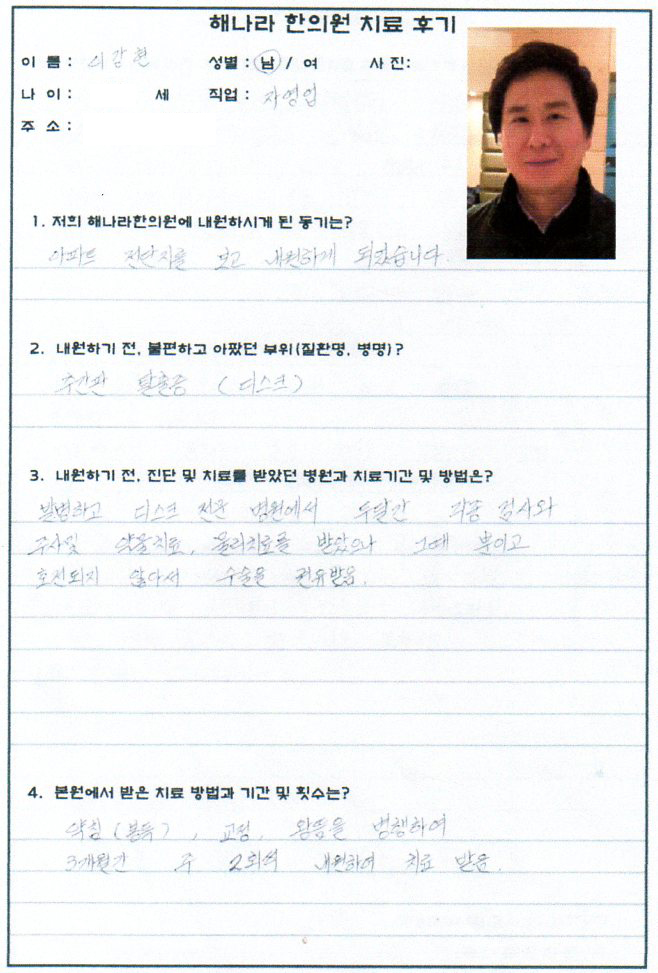 해나라 한의원 치료 후기
이 름 : 이강현 성별 : 남 / 여 사 진:
나 이 : 세 직업 : 자영업
주 소 :
1. 저희 해나라한의원에 내원하시게 된 동기는?
아파트 전단지를 보고 내원하게 되었습니다.
2. 내원하기 전, 불편하고 아팠던 부위(질환명, 병명)?
추간판 탈출증 (디스크)
3. 내원하기 전, 진단 및 치료를 받았던 병원과 치료기간 및 방법은?
발병하고 디스크 전문 병원에서 두달간 각종 검사와
주사및 약물치료, 물리치료를 받았으나 그때 뿐이고
호전되지 않아서 수술을 권유받음.
4. 본원에서 받은 치료 방법과 기간 및 횟수는?
약침 (봉독), 교정, 왕뜸을 병행하여
3개월간 주 2회씩 내원하여 치료 받음.